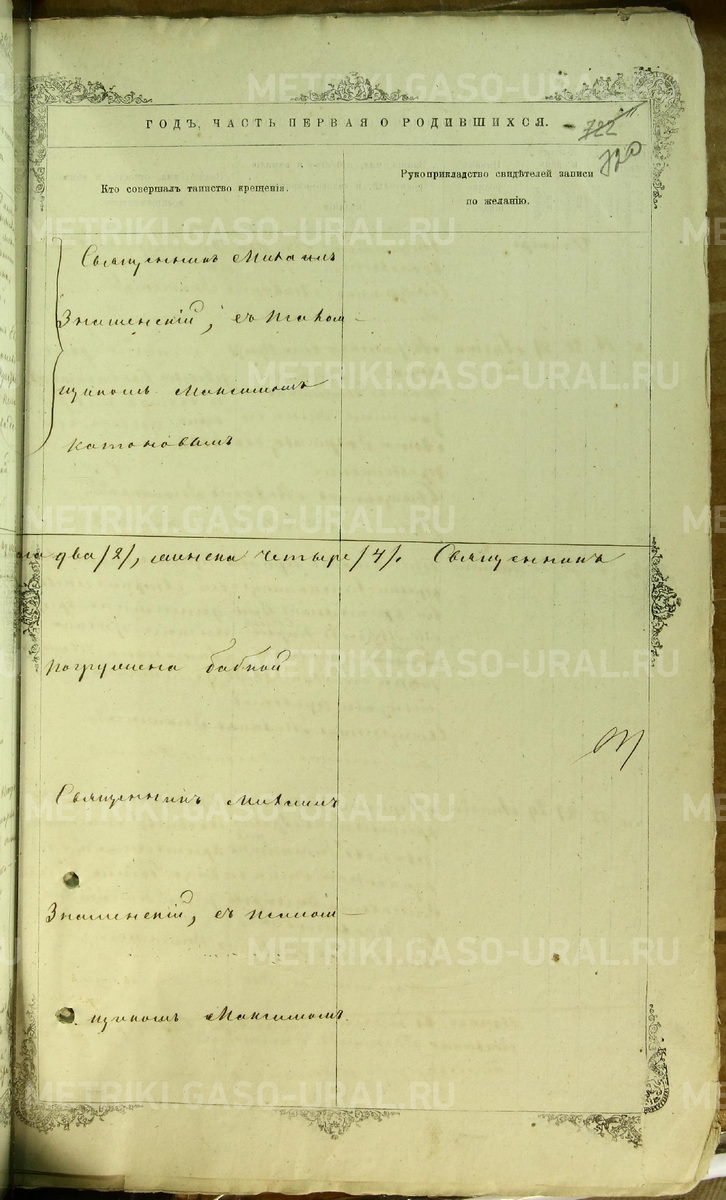 ГОДЪ, ЧАСТЬ ПЕРВАЯ О РОДИВШИХСЯ.
722
Кто совершалъ таинство крещенія.
Рукоприкладство свидѣтелей записи
по желанію.
Священникъ Михаилъ
Знаменскій, съ псалом-
щикомъ Максимомъ
Катоновымъ
два /2/, женска четыре /4/. Священникъ
погружена бабкой
Священникъ Михаилъ
Знаменскій, съ псалом-
щикомъ Максимомъ.
METRIKI.GASO-URAL.RU